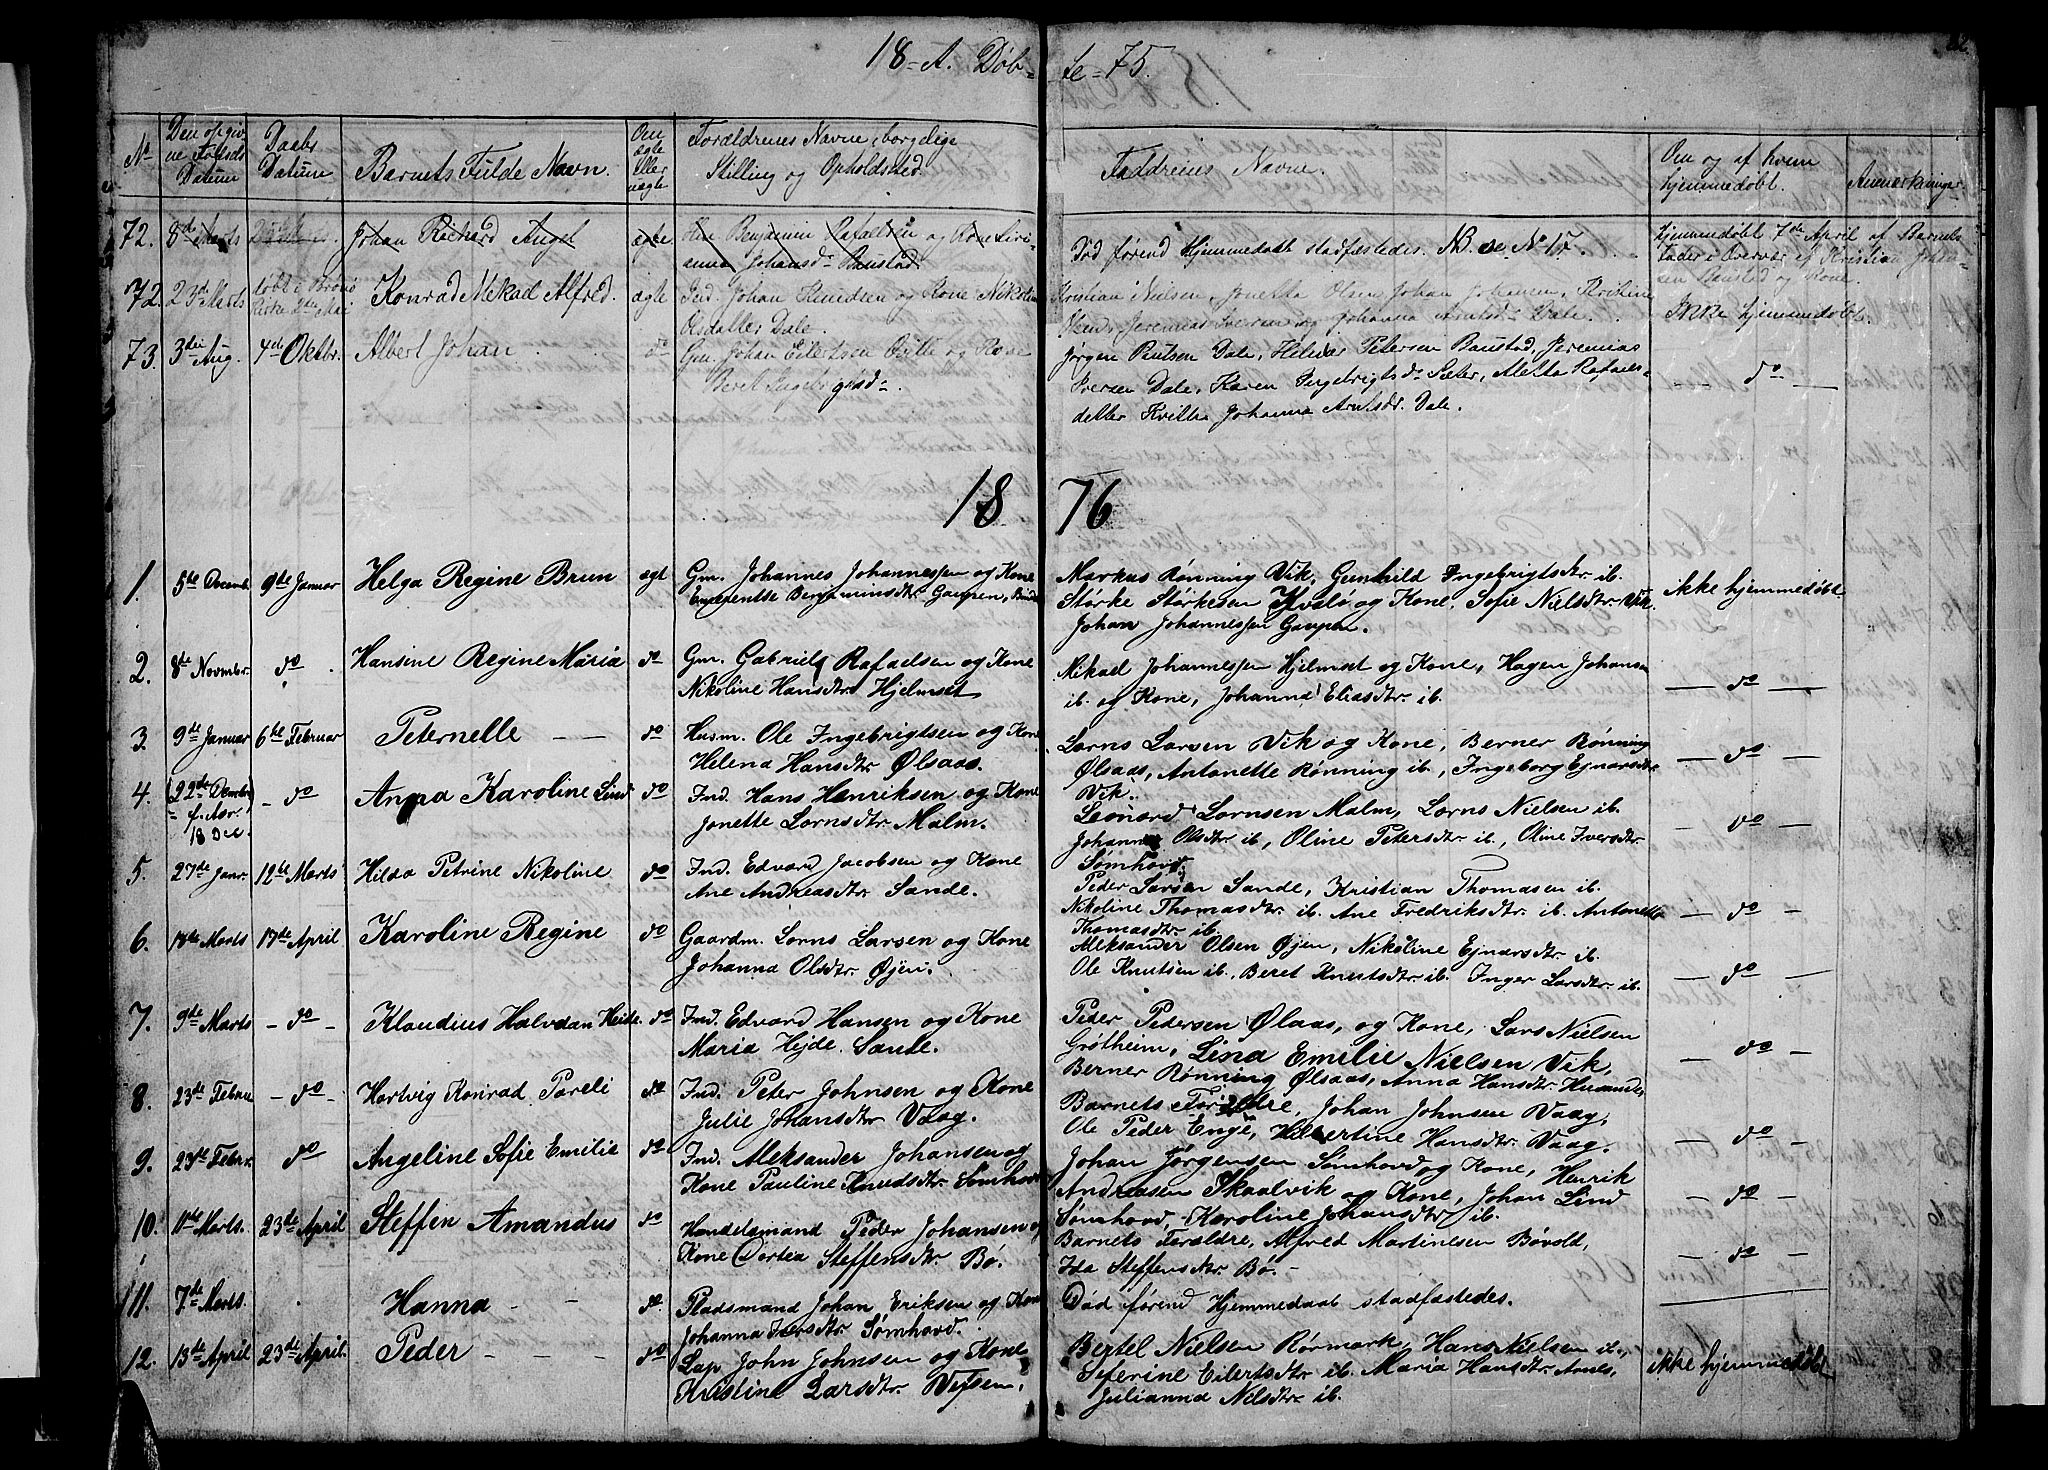 18 A. Døbte 75.
No
Den opgivne Fødsels Datum
Daabs Datum
Barnets Fulde Navn.
Om ægte eller uægte
Forældrenes Navne, borgelige Stilling og Opholdssted.
Faddrenes Navne.
Om og af hvem hjemmedøbt.
Anmærkninger.
72. 8de Marts Johan Richard Angel ægte
Død førend Hjemmedaab stadfæstedes. NB. se No 17.
Hjemmedøbt 7de April af Barnets Fader i Overvær af Kristian
Baustad og Kone.
72. 23de Marts døbt i Brønø Kirke Mai Konrad Mekal Alfred. ægte Ind. Johan Knudsen og Kone Nikoline
Olsdatter Dale.
Kristian Nielsen, Jonetta Olsen, Johan Johansen, Kristine
Jeremias Iversen og Johanna Arntsdr Dale.
Ikke hjemmedøbt.
73. 3die Aug. 4de Oktbr. Albert Johan do Gm. Johan Eilertsen og Kone
Beret Ingebrigtsd.
Jørgen Paulsen Dale, Helmer Petersen Baustad, Jeremias
Iversen Dale, Karen Ingebrigtsdr Sæter, Aletta Rafaels-
datter Kvitte, Johanna Arntsdr. Dale.
— do —
1876
1. 5te Decemb. 9de Januar Helga Regine Brun ægt Gm. Johannes Johannessen og Kone
Emerentse Benjaminsdtr Gaupen,
Markus Rønning Vik, Gunhild Ingebrigtsdtr. ib.
Størke Størkesen Kvalø og Kone, Sofie Nielsdtr Vik.
Johan Johannessen Gaupen.
ikke hjemmedøbt.
2. 8de Novmber. do Hansine Regine Maria do Gm. Gabriel Rafaelsen og Kone
Nikoline Hansdtr Hjelmset
Mikael Johannessen Hjelmset og Kone, Hagen Johansen
ib. og Kone, Johanna Eliasdtr. ib.
— do —
3. 9de Januar 6te Februar Peternelle — — do Husm. Ole Ingebrigtsen og Kone
Helena Hansdtr Ølsaas.
Lorns Larsen Vik og Kone, Berner Rønning
Ølsaas, Antonette Rønning ib., Ingeborg Ejnarsdtr
Vik.
— do —
4. (22de Dembr f. Aar. 18 Dec. — do Anna Karoline Lind do Ind. Hans Henriksen og Kone
Jonette Lornsdtr Malm.
Leonard Lornsen Malm, Lorns Nielsen ib.
Johanna Olsdtr ib., Oline Petersdtr ib., Oline Iversdtr.
Sømhovd.
— do —
5. 27de Janr. 12te Marts Hilda Petrine Nikoline do Ind. Edvard Jacobsen og Kone
Ane Andreasdtr Sande.
Peder Larsen Sande, Kristian Thomasen ib.
Nikoline Thomasdtr. ib. Ane Fredriksdtr. ib. Antonette
Thomasdtr. ib.
— do —
6. 18de Marts 17de April Karoline Regine do Gaardm. Lorns Larsen og Kone
Johanna Olsdtr. Øjen.
Aleksander Olsen Øjen, Nikoline Ejnarsdtr. ib.
Ole Knutsen ib., Beret Knutsdtr. ib. Inger Larsdtr. ib.
— do —
7. 9de Marts — do — Klaudius Halvdan Heide. do Ind. Edvard Hansen og Kone
Maria Hejde. Sande.
Peder Pedersen Ølsaas, og Kone, Lars Nielsen
Grøtheim, Lina Emilie Nielsen Vik,
Berner Rønning Ølsaas, Anna Hansdtr
— do —
8. 23de Febru — do — Hartvig Konrad Pareli do Ind. Peter Johnsen og Kone
Julie Johansdtr Vaag.
Barnets Forældre, Johan Johnsen Vaag,
Ole Peder Enge, Hansdtr. Vaag.
— do —
9. 23de Febr. do Angeline Sofie Emilie do Ind. Aleksander Johansen og
Kone Pauline Knudsdtr. Sømhovd
Johan Jørgensen Sømhovd og Kone, Henrik
Andreasen Skaalvik og Kone, Johan Lind
Sømhovd, Karoline Johansdtr. ib.
— do —
10. Marts. 23de April Steffen Amandus do Handelsmand Peder Johansen og
Kone Dortea Steffensdtr. Bø.
Barnets Forældre, Alfred Martinesen Bøvold,
Ida Steffensdtr. Bø.
— do —
11. 7de Marts. Hanna — — do. Pladsmand Johan Eriksen og Kone
Johanna Iversdtr. Sømhovd.
Død førend Hjemmedaab stadfæstedes.
12. 13de April 23de April. Peder — — — do Lap John Johnsen og Kone
Kristine Larsdtr. Vefsen.
Bertel Nielsen Rørmark, Hans Nielsen ib.,
Seferine Eilertsdtr ib. Maria Hansdtr
Julianna Nelsdtr ib.
ikke hjemmedøbt